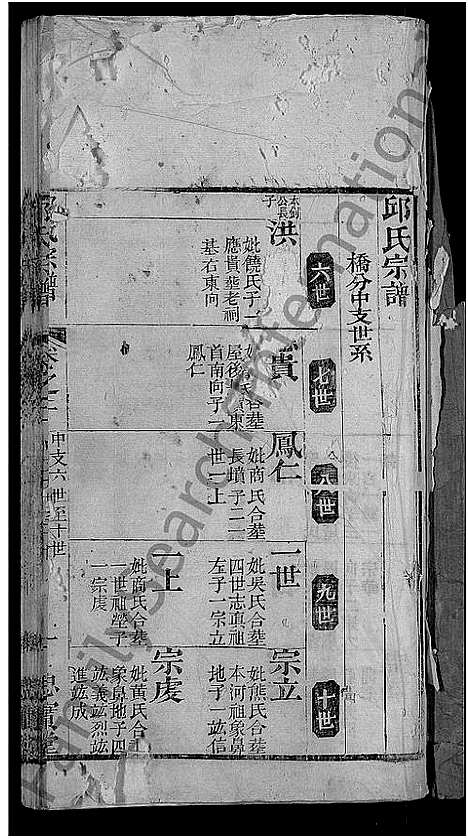 邱氏宗譜
橋分中支世系
六世
七世
八世
九世
十世
公長
子
洪
妣饒氏子一
應貴葬老祠
基右東向
貴
氏合葬
屋後東
首南向子一
鳳仁
鳳仁
妣商氏合葬
長墳子二
世一上
一世
妣吳氏合葬
四世志真祖
左子一宗立
一上
妣商氏合葬
一世祖塋子
一宗虔
宗立
妣熊氏合葬
本河祖象鼻
地子一竑信
宗虔
妣黃氏合
象鼻地子四
竑義竑烈竑
進竑成
宗譜
中支六世至十世
FamilySearch International